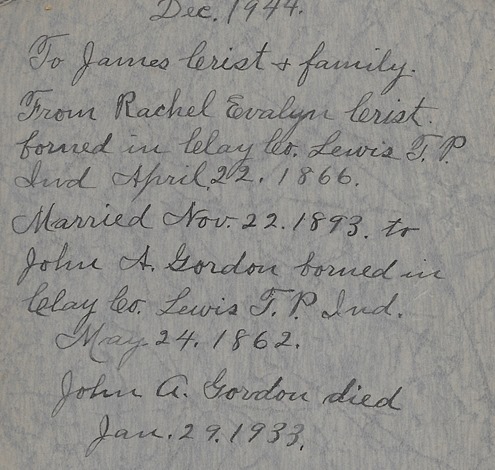 Dec. 1944.
To James Crist & family.
From Rachel Evalyn Crist.
borned in Clay Co. Lewis T. P.
Ind April, 22. 1866.
Married Nov. 22. 1893. to
John A. Gordon borned in
Clay Co. Lewis T. P. Ind.
May 24. 1862.
John A. Gordon died
Jan. 29. 1933.